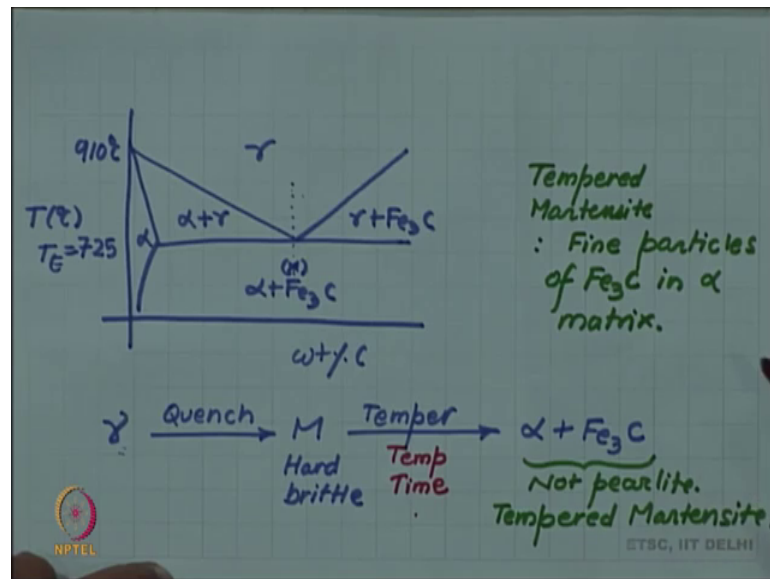 910℃
γ
T(℃)
T_E=725
α+γ
γ+Fe₃C
α
(M)
α+Fe₃C
wt%.C
Tempered
Martensite
: Fine particles
of Fe₃C in α
matrix.
γ Quench M Temper α + Fe₃C
Hard
brittle
Temp
Time
Not pearlite.
Tempered Martensite
NPTEL
ETSC, IIT DELHI